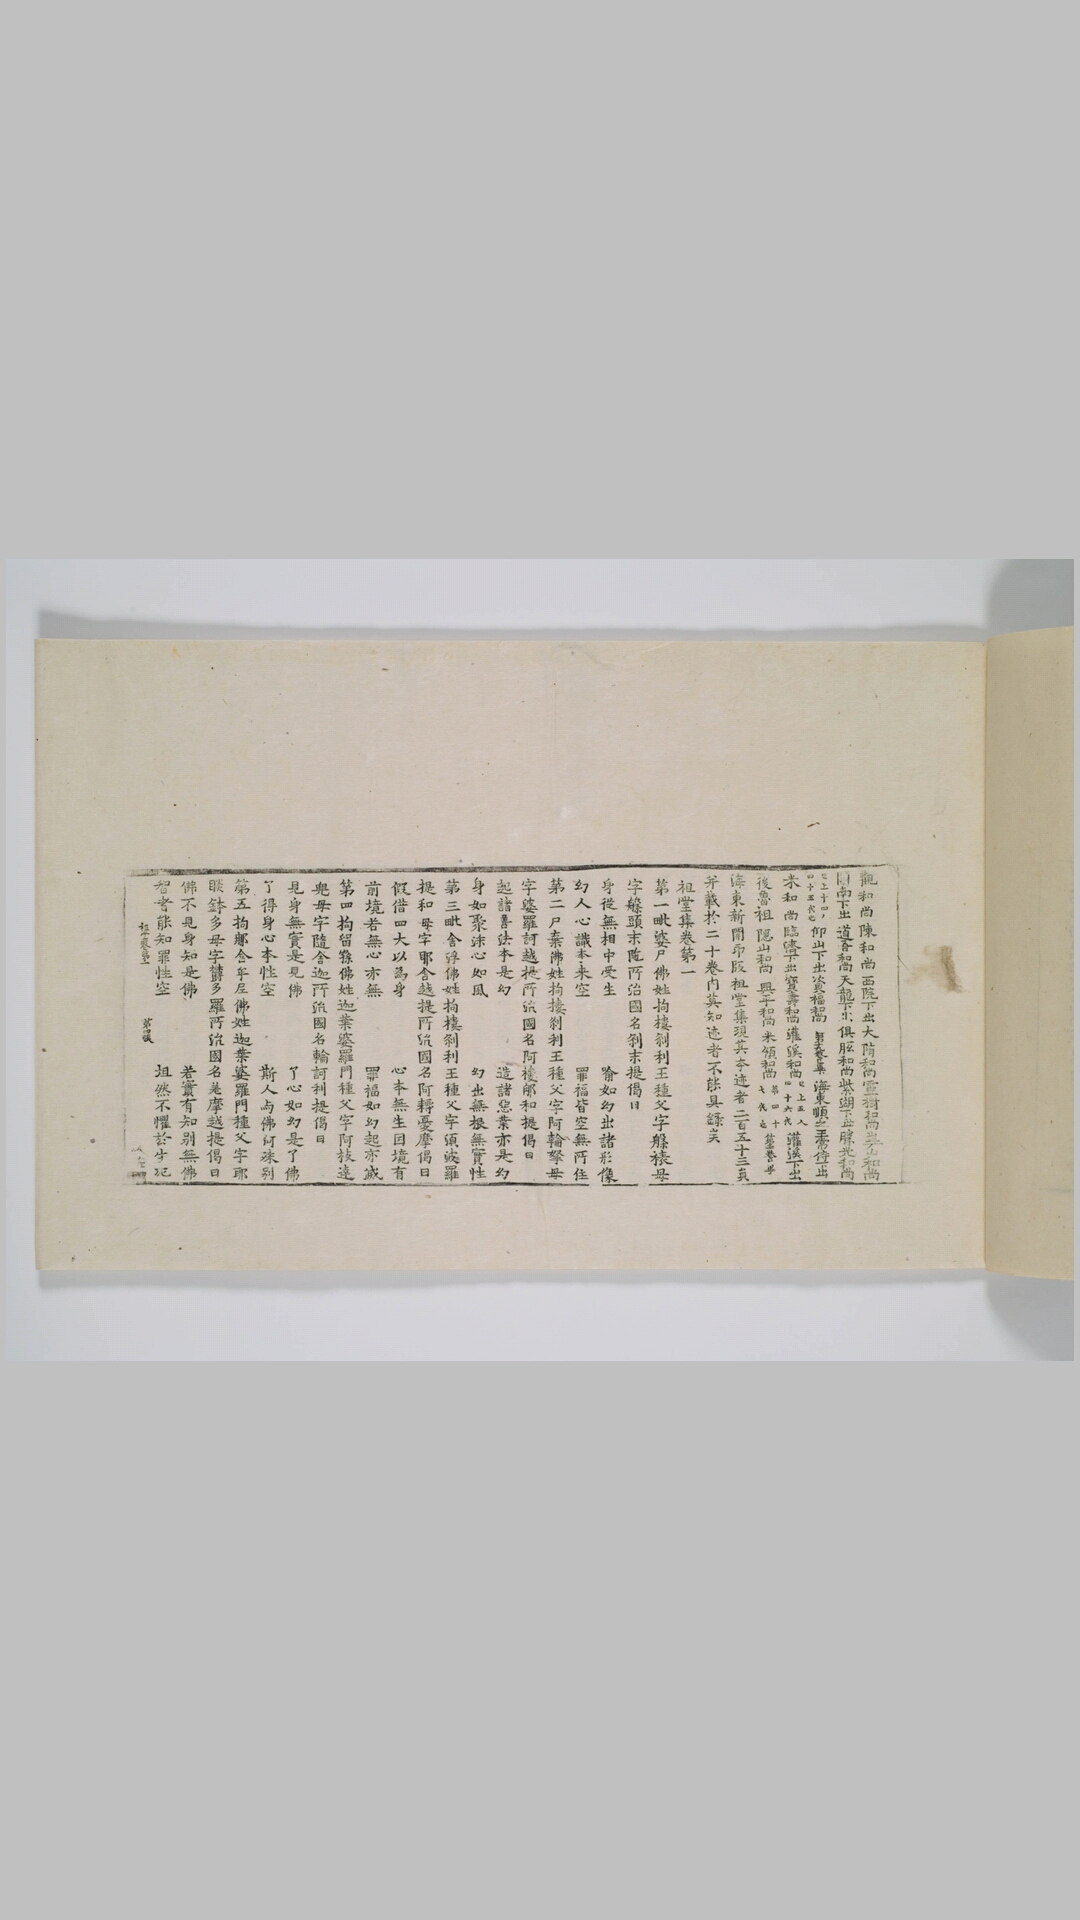 觀和尚 陳和尚 西院下出 大隋和尚 靈樹和尚 和尚
關南下出 道吾和尚 天龍下出 俱胝和尚 紫湖下出 勝光和尚
已上十四人 四十五代也 仰山下出 資福和尚 海東順之
米和尚 臨濟下出 寶壽和尚 灌溪和尚 已上五人 四十六代 灌溪下出
後魯祖 隱山和尚 興平和尚 米嶺和尚 第四十七代也
海東新開印版祖堂集現其夲迹者二百五十三員
并載於二十卷內莫知迹者不能具錄矣
祖堂集卷第一
第一毗婆尸佛姓拘樓剎利王種父字槃裱母
字槃頭末陁所治國名剎末提偈曰
身從無相中受生 喻如幻出諸形像
幻人心識本來空 罪福皆空無所住
第二尸棄佛姓拘樓剎利王種父字阿輪拏母
字婆羅訶越提所治國名阿樓郍和提偈曰
起諸善法本是幻 造諸惡業亦是幻
身如聚沫心如風 幻出無根無實性
第三毗舍浮佛姓拘樓剎利王種父字須波羅
提和母字耶舍越提所治國名阿耨憂摩偈曰
假借四大以為身 心本無生因境有
前境若無心亦無 罪福如幻起亦滅
第四拘留孫佛姓迦葉婆羅門種父字阿枝達
兜母字隨舍迦所治國名輪訶利提偈曰
見身無實是見佛 了心如幻是了佛
了得身心本性空 斯人與佛何殊別
第五拘郍含牟尼佛姓迦葉婆羅門種父字耶
睒鉢多母字欝多羅所治國名差摩越提偈曰
佛不見身知是佛 若實有知別無佛
智者能知罪性空 坦然不懼於生死
祖堂卷第一 第四張